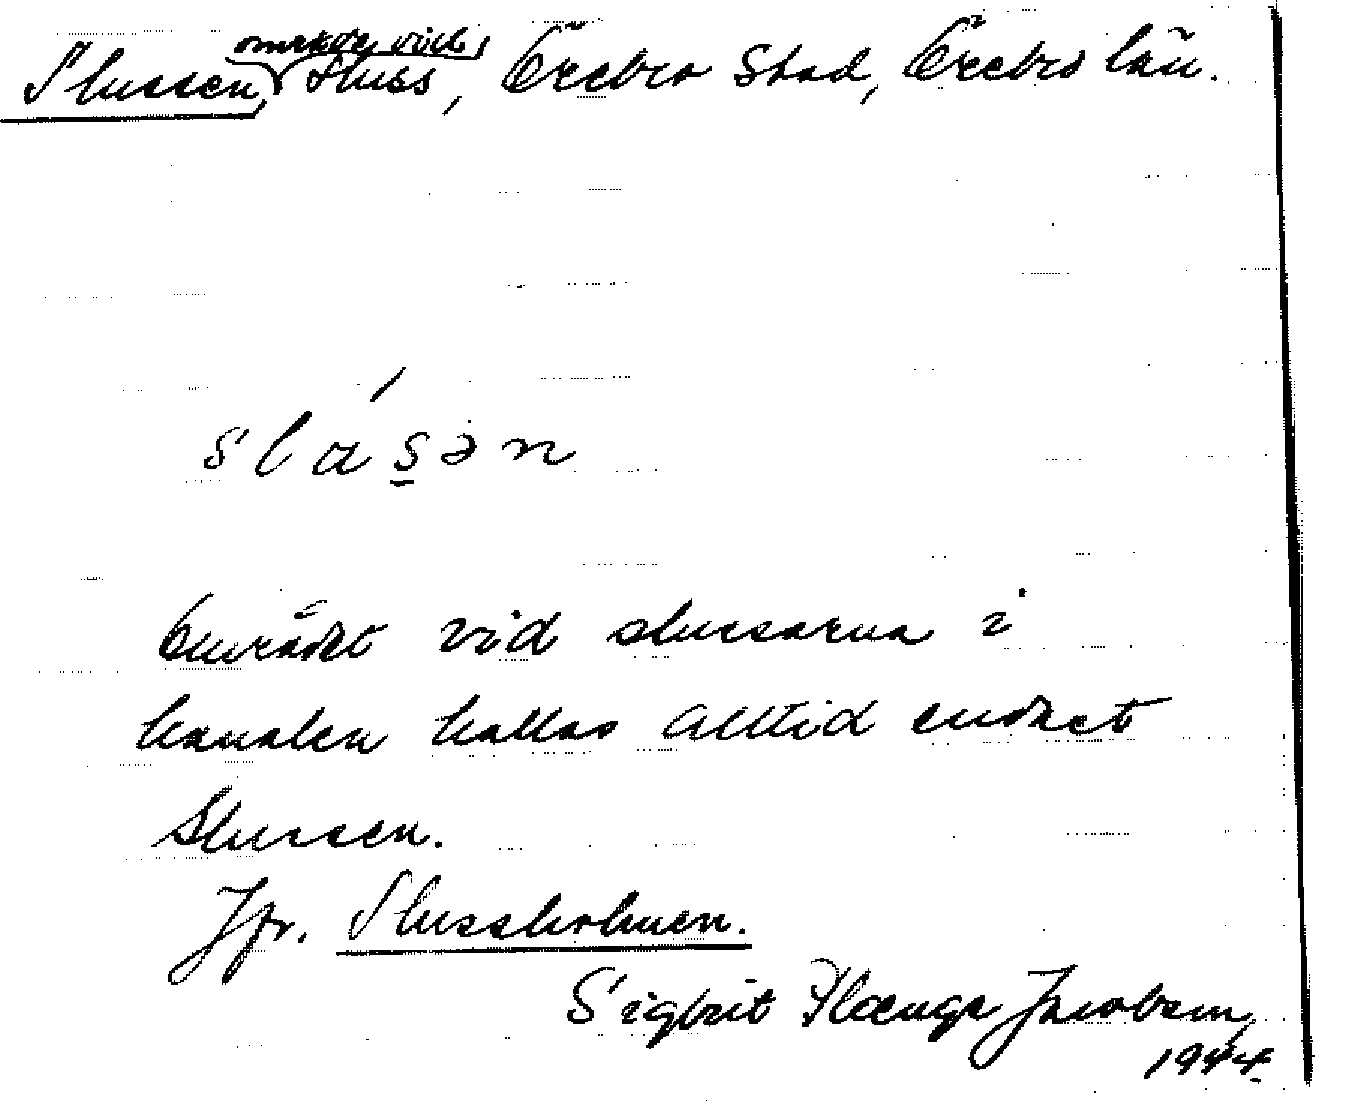 område vid
Slussen, sluss, Örebro stad, Örebro län.
slásən
Området vid slussarna i
kanalen kallas alltid endast
Slussen.
Jfr. Slussholmen.
Sigbrit Plænge Jacobson,
1944.